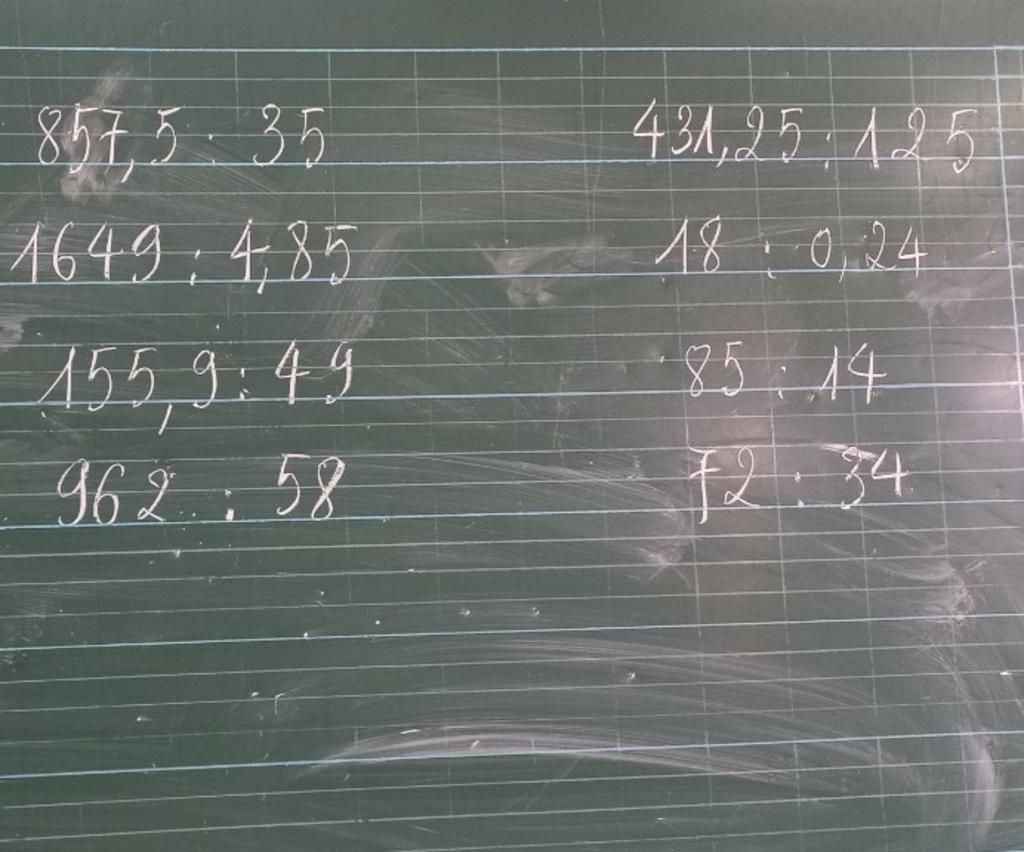 857,5 : 35 431,25 : 125
1649 : 4,85 18 : 0,24
155,9 : 49 85 : 14
962 : 58 72 : 34